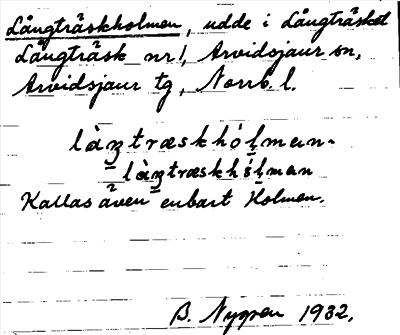 Långträskholmen, udde i Långträsket
Långträsk nr 1, Arvidsjaur sn,
Arvidsjaur tg, Norrb. l.
Kallas även enbart Holmen.
B. Nygren 1932.